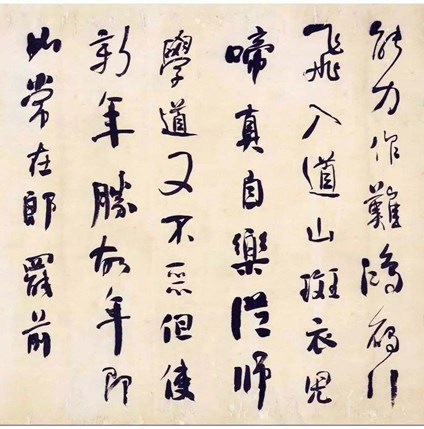 能力作難鴻鴈行
飛入道山斑衣兒
啼真自樂從師
學道又不惡但使
新年勝故年即
如常在郎罷前